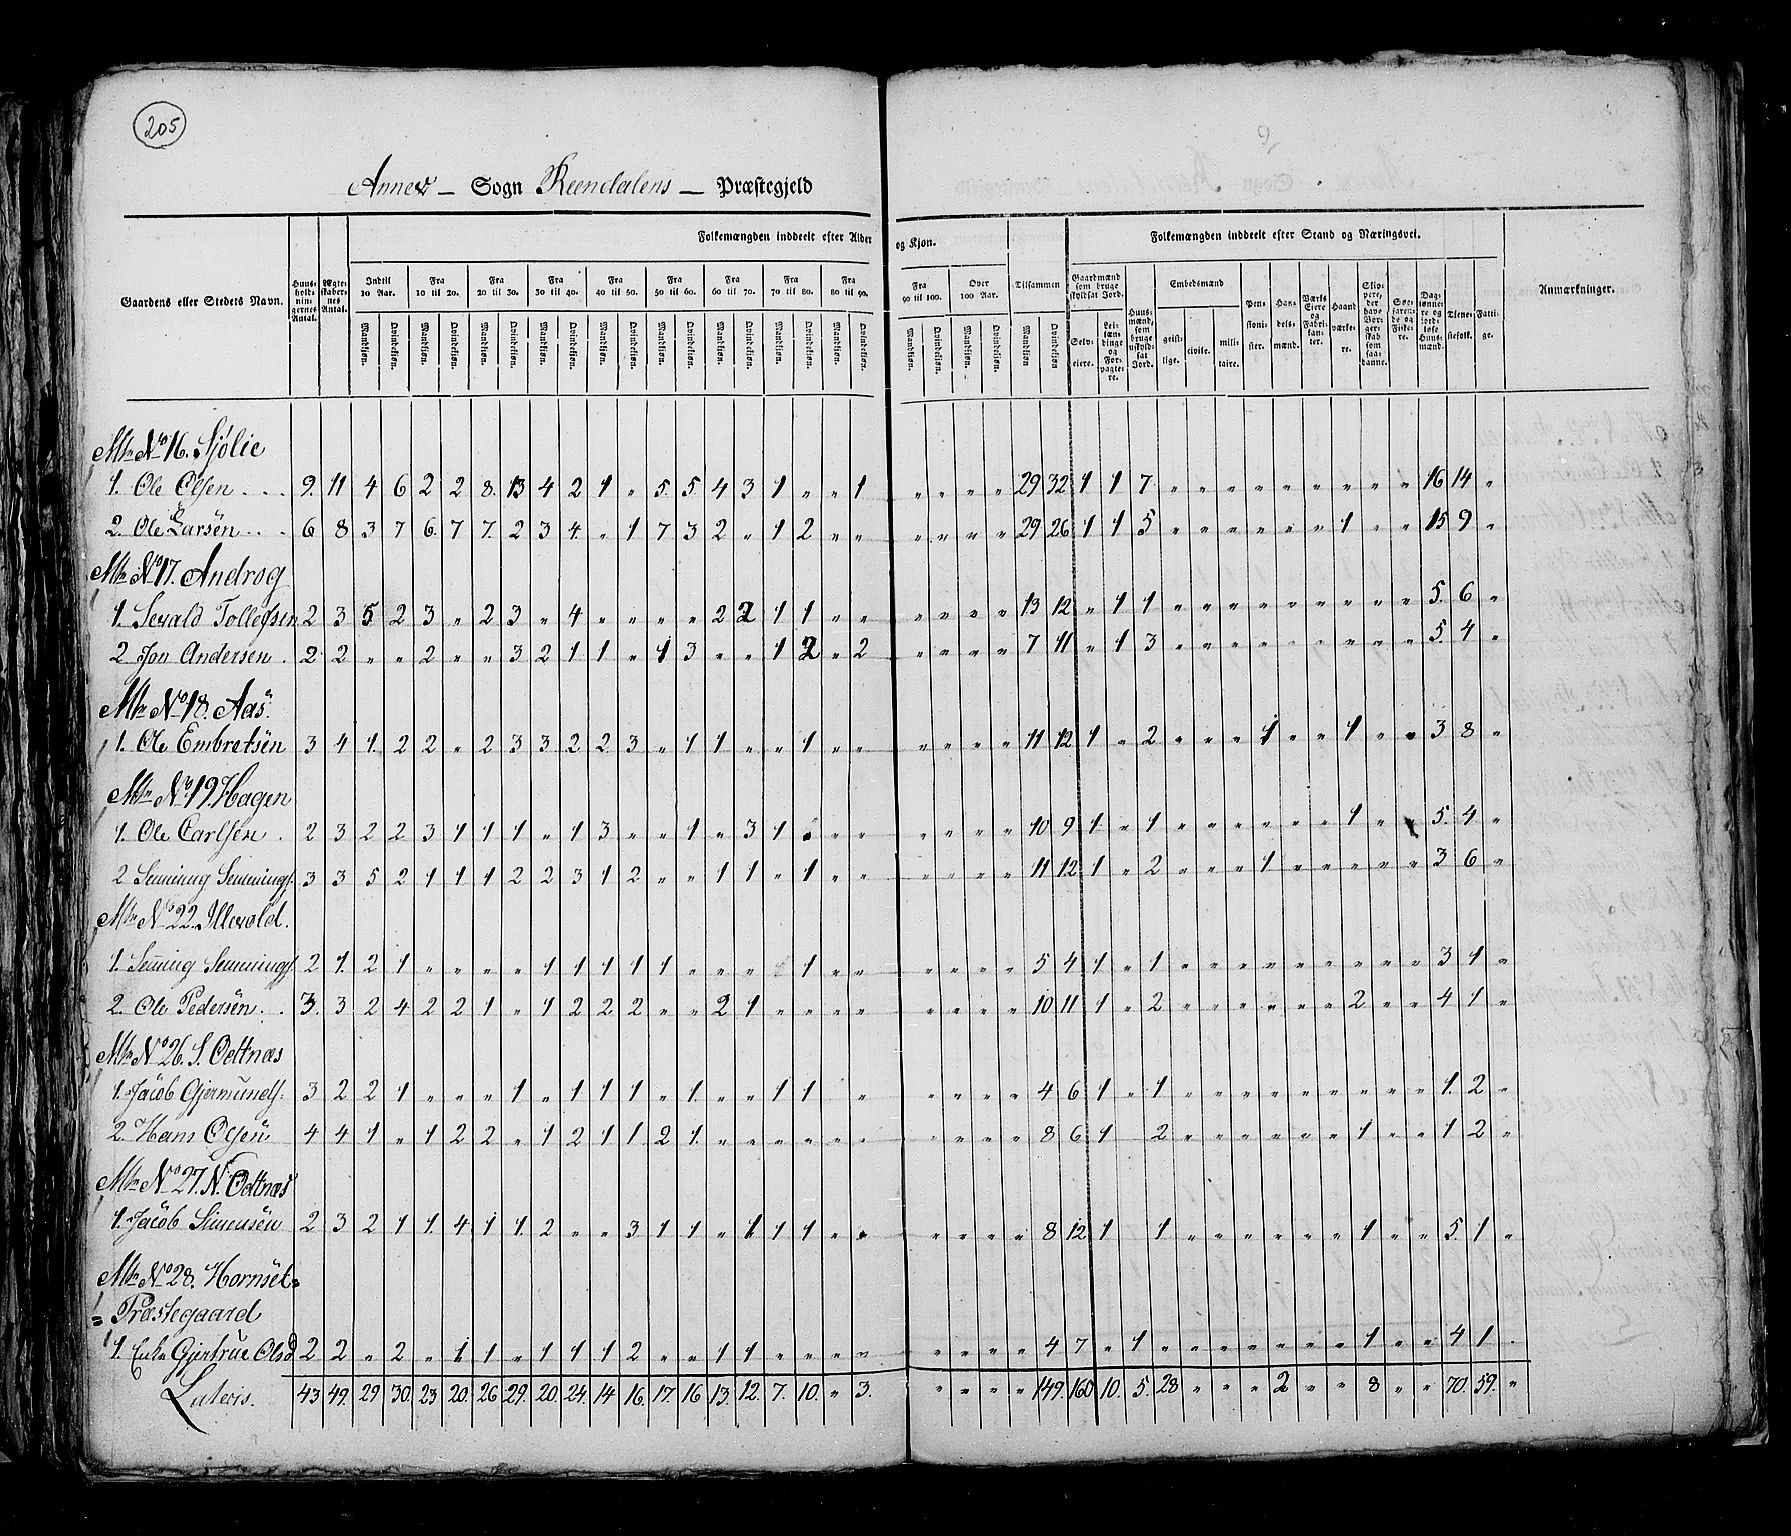 205
Annex – Sogn Reendalens – Præstegjeld
Folkemængden inddeelt efter Alder og Kjøn.
Folkemængden inddeelt efter Stand og Næringsvei.
Gaardens eller Stedets Navn.
Huus-holdnin-gernes Antal.
Ægte-skaber-nes Antal.
Indtil 10 Aar.
Fra 10 til 20.
Fra 20 til 30.
Fra 30 til 40.
Fra 40 til 50.
Fra 50 til 60.
Fra 60 til 70.
Fra 70 til 80.
Fra 80 til 90.
Fra 90 til 100.
Over 100 Aar.
Tilsammen
Mandkjøn. Qvindekjøn.
Gaardmænd som bruge skyldsat Jord.
Selv-eiere.
Lei-læn-dinge og For-pagte-re.
Huus-mænd, som bruge uskyld-sat Jord.
Embedsmænd
geist-lige.
civile.
mili-taire.
Pen-sioni-ster.
Han-dels-mænd.
Værks Eiere og Fabri-kan-ter.
Haand-værke-re.
Søe-farende og Fiske-re.
Tjene-stefolk.
Fatti-ge.
Anmærkninger.
Mtr No 16. Sjølie
1. Ole Olsen . . . 9. 11 4 6 2 2 8. 13 4 2 1 „ 5. 5 4 3 1 „ „ 1 „ „ „ „ 29 32 1 1 7 „ „ „ „ „ „ „ „ „ 16 14 „
2. Ole Larsen . . . 6 8 3 7 6. 7 7. 2 3 4. „ 1 7 3 2 „ 1 2 „ „ „ „ „ „ 29 26 1 1 5 „ „ „ „ „ „ 1 „ „ 15 9 „
Mtr No 17. Androg
1. Sevald Tollefsen 2 3 5 2 3 „ 2 3 „ 4 „ „ „ „ 2 2 1 1 „ „ „ „ „ „ 13 12 „ 1 1 „ „ „ „ „ „ „ „ „ 5. 6 „
2 Jon Andersen . 2 2 „ „ 2 „ „ 3 2 1 1 „ 1 3 „ „ 1 2 „ 2 „ „ „ „ 7 11 „ 1 3 „ „ „ „ „ „ „ „ „ 5. 4 „
Mtr No 18. Aas.
1. Ole Embretsen 3 4 1. 2 2 „ 2 3 3 2 2 3 „ 1 1 „ „ 1 „ „ „ „ „ „ 11 12 1 „ 2 „ „ „ 1 „ „ 1 „ „ 3 8 „
Mtr No 19. Hagen
1. Ole Carlsen . 2 3 2 2 3 1 1 1 „ 1 3 „ „ 1 „ 3 1 „ „ „ „ „ „ 10 9 1 „ 1 „ „ „ „ „ „ 1 „ „ 5. 4 „
2 Semming Semmings. 3 3 5 2 1 1 1 2 2 3 1 2 „ „ 1 1 „ 1 „ „ „ „ „ „ 11 12 1 „ 2 „ „ „ 1 „ „ „ „ „ 3 6 „
Mtr No 22. Illevold.
1. Seming Semmings. 2 1. 2 1 „ „ „ „ 1 1 1 1 1 „ „ „ „ 1 „ „ „ „ „ „ 5 4 1 „ 1 „ „ „ „ „ „ „ „ „ 3 1 „
2. Ole Pedersen . . 3. 3 2 4 2 2 1 „ 1 2 2 2 „ „ 2 1 „ „ „ „ „ „ „ „ 10 11 1 „ 2 „ „ „ „ „ „ 2 „ „ 4 1 „
Mtr No 26. S. Oettnæs
1. Jacob Gjermunds. 3 2 2 1 „ „ „ 1 „ 1 1 1 „ 1 „ „ 1 1 „ „ „ „ „ 4 6 1 „ 1 „ „ „ „ „ „ „ „ „ 1. 2 „
2. Hans Olsen 4 4 1 „ 1 2 2 „ 1 2 1 1 2 1. „ „ „ „ „ „ „ „ „ „ 8 6 1 2 „ „ „ „ „ „ 1 „ „ 1 2 „
Mtr No 27. N. Oettnæs
1. Jacob Simensen 2 3 2 1 1. 4 1 1. 2 „ „ 3 1 1 „ 1 1 1 „ „ „ „ „ „ 8 12 1 1 „ „ „ „ „ „ 1 „ „ 5. 1 „
Mtr No 28. Hornset=
= Præstegaard
1. Enke Gjertrue Olsd 2 2 „ 2 „ 1 1 „ 1 1 1 2 „ „ 1 1 „ „ „ „ „ „ „ „ 4 7 „ 1 „ „ „ „ „ „ „ 1 „ „ 4 1 .
Lateris. 43 49. 29 30. 23 20. 26 29. 20. 24. 14 16. 17. 16 13. 12. 7. 10. „ 3. „ „ „ „ 149. 160 10. 5. 28 „ „ „ 2 „ „ 8 „ „ 70. 59. „